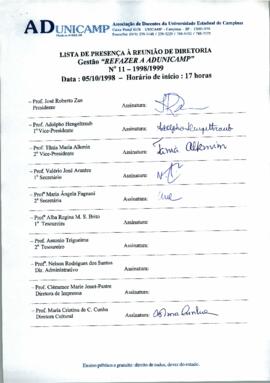 ADUNICAMP
Associação de Docentes da Universidade Estadual de Campinas
LISTA DE PRESENÇA À REUNIÃO DE DIRETORIA
Gestão "REFAZER A ADUNICAMP"
Nº 11 – 1998/1999
Data : 05/10/1998 – Horário de início : 17 horas
– Prof. José Roberto Zan Assinatura:
Presidente
– Prof. Adolpho Hengeltraub Assinatura: Adolpho Hengeltraub
1º Vice-Presidente
– Profª. Tânia Maria Alkmin Assinatura: Tania Alkmim
2ª Vice-Presidente
– Prof. Valério José Arantes Assinatura:
1º Secretário
– Profª Maria Ângela Fagnani Assinatura:
2ª Secretária
– Profª Alba Regina M. S. Brito Assinatura:
1ª Tesoureira
– Prof. Antonio Trigueiros Assinatura:
2º Tesoureiro
– Profº. Nelson Rodrigues dos Santos Assinatura:
Dir. Administrativo
– Profª. Clémence Marie Jouët-Pastre Assinatura:
Diretora de Imprensa
– Profª. Maria Cristina de C. Cunha Assinatura:
Diretora Cultural
Ensino público e gratuito: direito de todos, dever do estado.